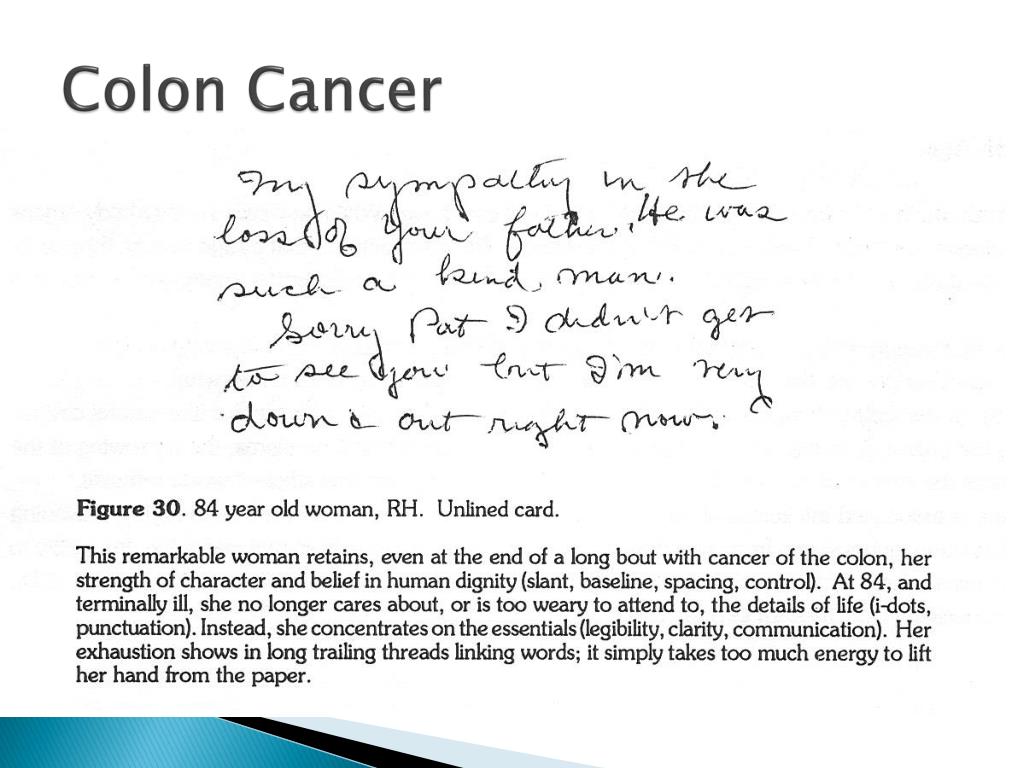 Colon Cancer
My sympathy in the
loss of your father. He was
such a kind, man.
Sorry Pat I didn't get
to see you but I'm very
down & out right now.
Figure 30. 84 year old woman, RH. Unlined card.
This remarkable woman retains, even at the end of a long bout with cancer of the colon, her
strength of character and belief in human dignity (slant, baseline, spacing, control). At 84, and
terminally ill, she no longer cares about, or is too weary to attend to, the details of life (i-dots,
punctuation). Instead, she concentrates on the essentials (legibility, clarity, communication). Her
exhaustion shows in long trailing threads linking words; it simply takes too much energy to lift
her hand from the paper.